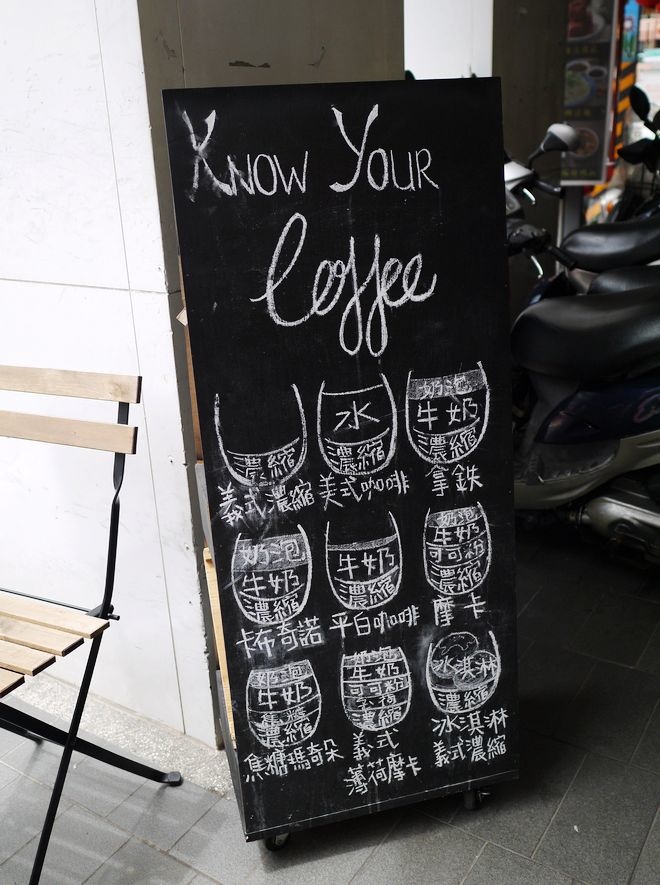 KNOW YOUR
Coffee
濃縮
義式濃縮
水
濃縮
美式咖啡
奶泡
牛奶
濃縮
拿鉄
奶泡
牛奶
濃縮
卡布奇諾
牛奶
濃縮
平白咖啡
奶泡
牛奶
可可粉
濃縮
摩卡
奶泡
牛奶
焦糖
濃縮
焦糖瑪奇朵
奶泡
牛奶
可可粉
濃縮
義式
薄荷摩卡
冰淇淋
濃縮
冰淇淋
義式濃縮